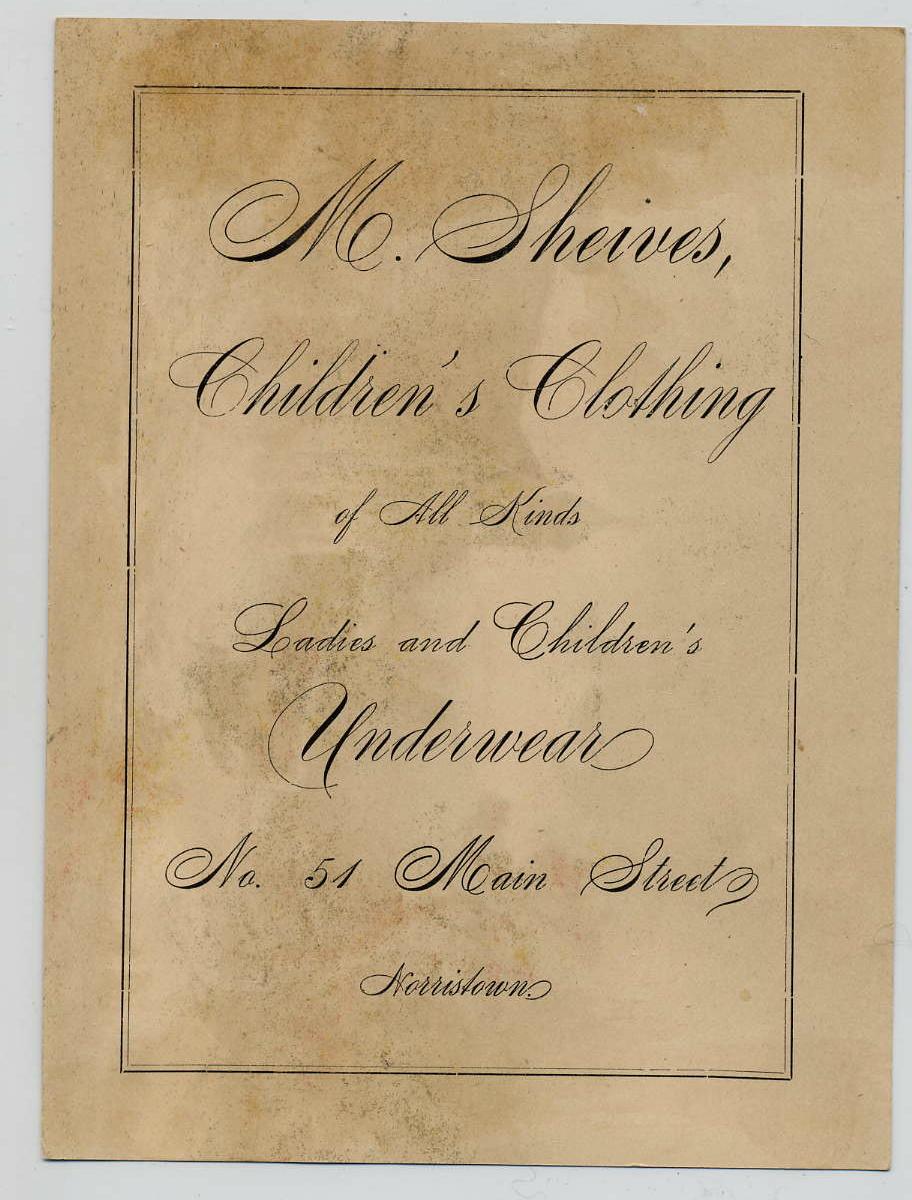 M. Sheives,
Children's Clothing
of All Kinds
Ladies and Children's
Underwear
No. 51 Main Street
Norristown.